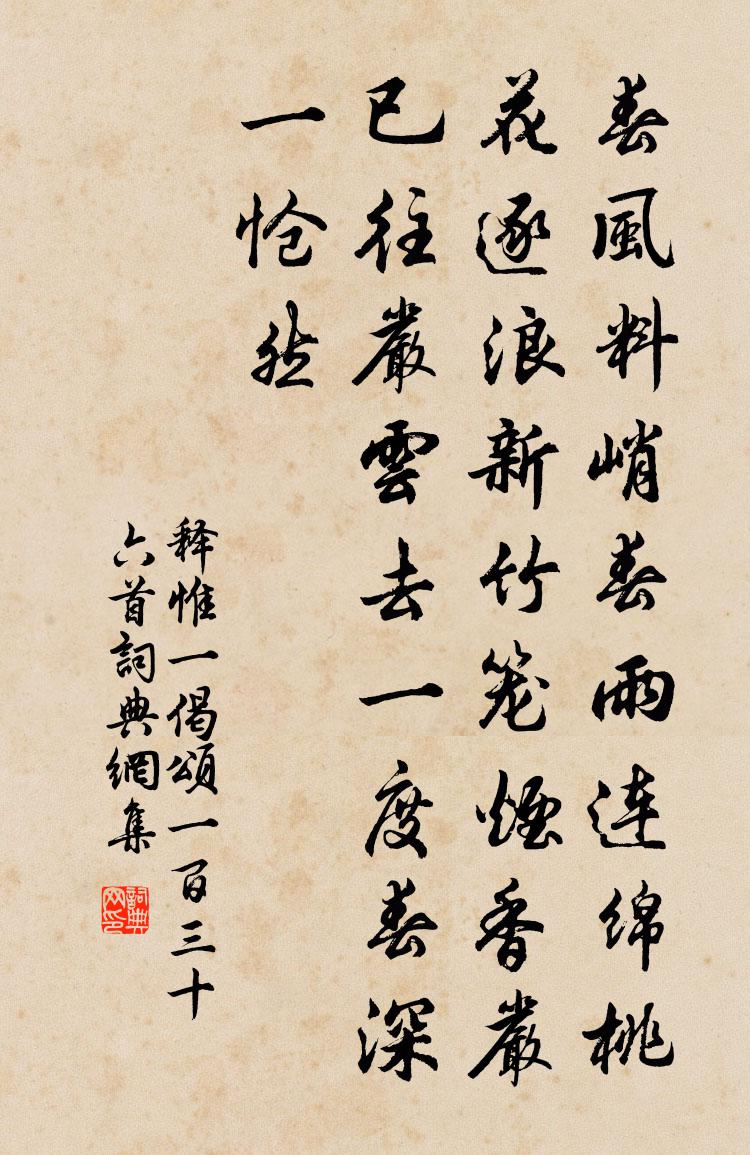 春風料峭春雨連綿桃
花逐浪新竹笼煙香嚴
已往嚴雲去一度春深
一怆然
释惟一偈頌一百三十
六首詞典網集
詞典网印